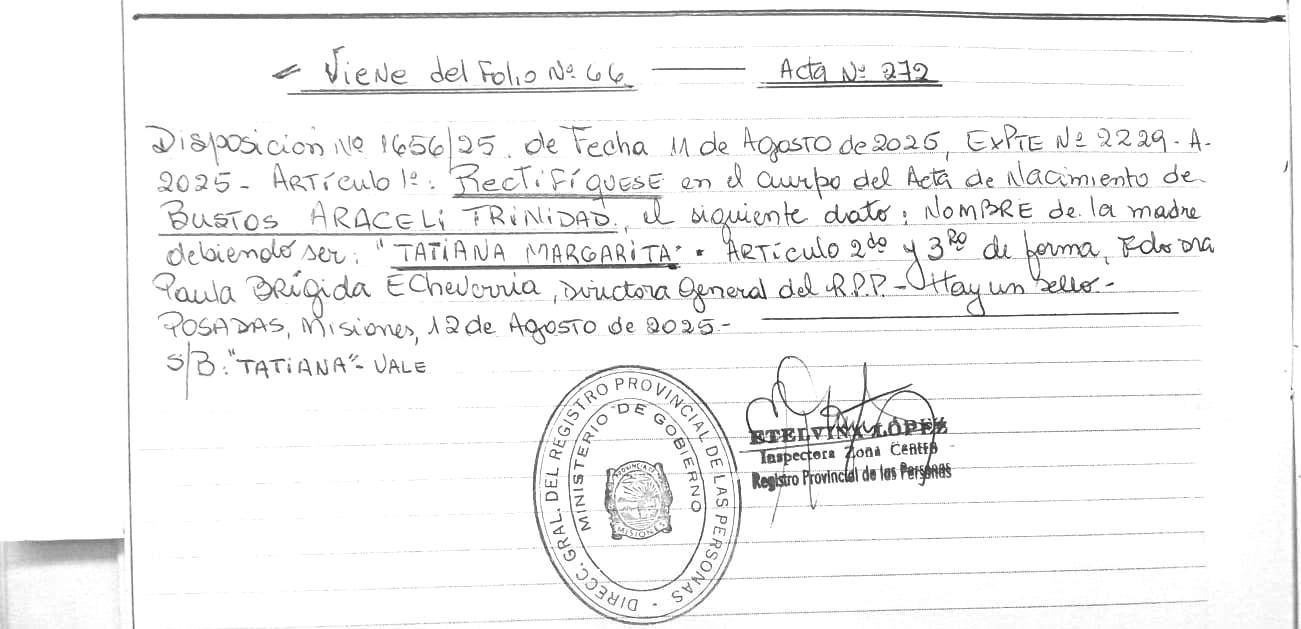 Viene del Folio Nº 66 Acta Nº 272
Disposición Nº 1656/25. de Fecha 11 de Agosto de 2025, EXPTE Nº 2229-A-
2025- ARTículo 1º: RECTIFÍQUESE en el cuerpo del Acta de Nacimiento de
BUSTOS ARACELI TRINIDAD, el siguiente dato: NOMBRE de la madre
debiendo ser: "TATIANA MARGARITA". ARTículo 2do y 3Ro de forma, Fdo Dra
Paula BRígida Echeverria, Directora General del R.P.P.- Hay un sello.-
POSADAS, Misiones, 12 de Agosto de 2025.-
S/B: "TATIANA"- VALE
DIRECC. GRAL. DEL REGISTRO PROVINCIAL DE LAS PERSONAS -
MINISTERIO DE GOBIERNO
MISIONES
ETELVINA LÓPEZ
Inspectora Zona Centro
Registro Provincial de las Personas